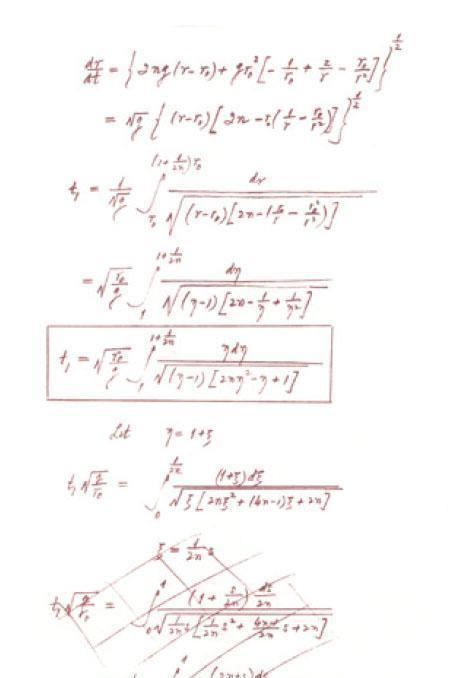 dr/dt = { 2ng(r-r₀) + gr₀²[ -1/r₀ + 2/r - r₀/r² ] }^{1/2}
= √g { (r-r₀)[ 2n - r₀(1/r - r₀/r²) ] }^{1/2}
t₁ = 1/√g ∫_{r₀}^{(1+1/2n)r₀} dr / √( (r-r₀)[ 2n - (r₀/r - r₀²/r²) ] )
= √(r₀/g) ∫_1^{1+1/2n} dη / √( (η-1)[ 2n - 1/η + 1/η² ] )
t₁ = √(r₀/g) ∫_1^{1+1/2n} η dη / √( (η-1)[ 2nη² - η + 1 ] )
Let η = 1+ξ
t₁√(g/r₀) = ∫_0^{1/2n} (1+ξ)dξ / √( ξ[ 2nξ² + (4n-1)ξ + 2n ] )
ξ = 1/2n s
t₁√(g/r₀) = ∫_0^1 (1 + s/2n) ds/2n / √( 1/2n s [ 1/2n s² + (4n-1)/2n s + 2n ] )